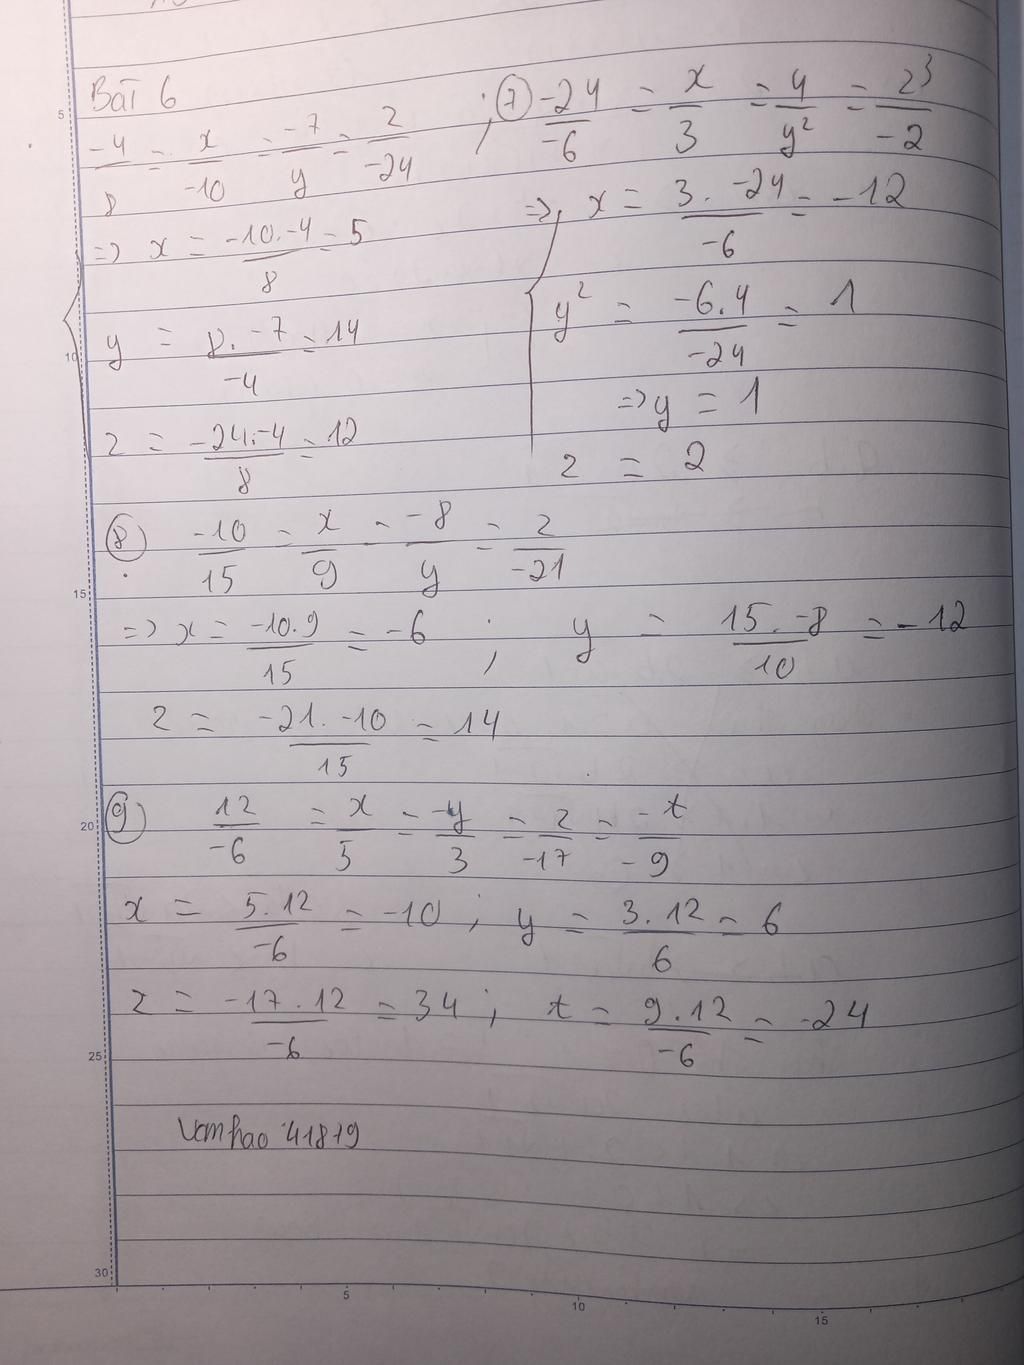 Bài 6
-4/8 = x/-10 = -7/y = z/-24 ;
=> x = -10.-4/8 = 5
y = 8.-7/-4 = 14
z = -24.-4/8 = 12
7 -24/-6 = x/3 = 4/y² = z³/-2
=> x = 3.-24/-6 = -12
y² = -6.4/-24 = 1
=> y = 1
z = 2
8) -10/15 = x/9 = -8/y = z/-21
=> x = -10.9/15 = -6 ; y = 15.-8/10 = -12
z = -21.-10/15 = 14
9) 12/-6 = x/5 = -y/3 = z/-17 = -t/-9
x = 5.12/-6 = -10 ; y = 3.12/6 = 6
z = -17.12/-6 = 34 ; t = 9.12/-6 = -24
41819
5
10
15
20
25
30
5
10
15